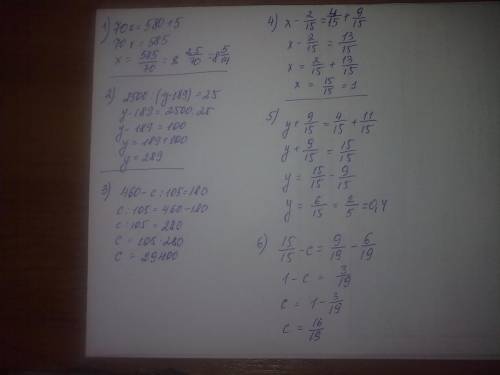 1) 70x = 580+5
70x = 585
x = 585/70 = 8 25/70 = 8 5/14
2) 2500 : (y-189) = 25
y-189 = 2500:25
y-189 = 100
y = 189+100
y = 289
3) 460-c:105=180
c:105=460-180
c:105=280
c = 105·280
c = 29400
4) x - 2/15 = 4/15 + 9/15
x - 2/15 = 13/15
x = 2/15 + 13/15
x = 15/15 = 1
5) y + 9/15 = 4/15 + 11/15
y + 9/15 = 15/15
y = 15/15 - 9/15
y = 6/15 = 2/5 = 0,4
6) 15/15 - c = 9/19 - 6/19
1-c = 3/19
c = 1 - 3/19
c = 16/19